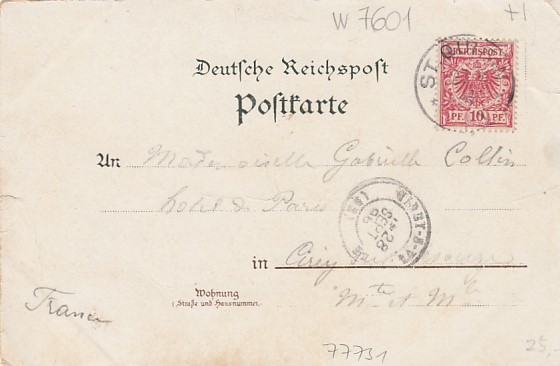 W 7601
+1
Deutsche Reichspost
Postkarte
REICHSPOST
PF. 10 PF.
ST. QU
An Mademoiselle Gabrielle Collin
hotel de Paris
28 SEPT 98
(55)
in Cirey
Mte et Mle
Wohnung
(Straße und Hausnummer.
France
77731
25,-